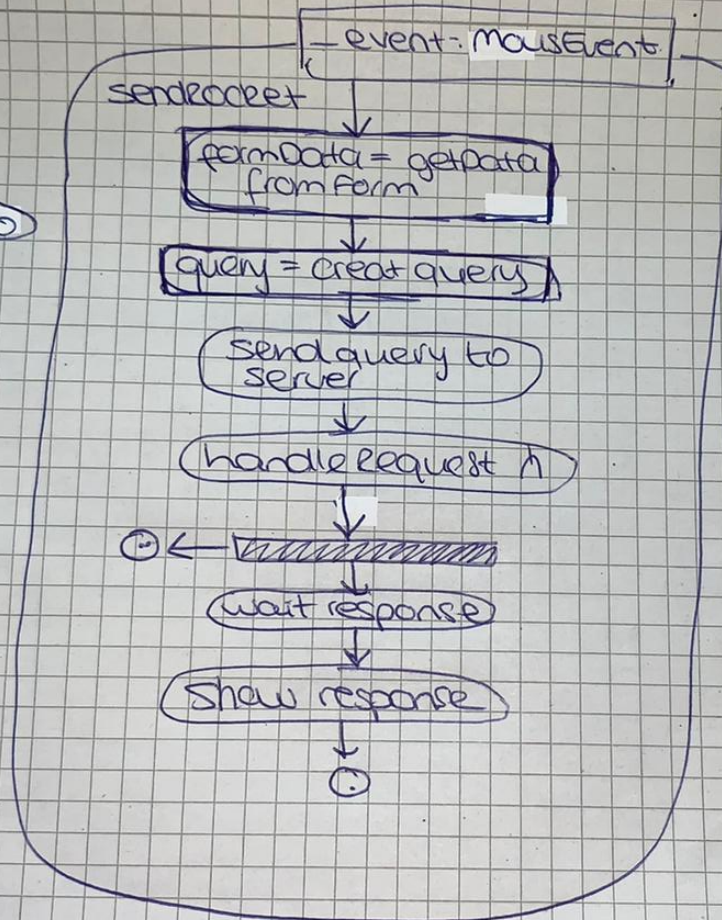 _event: MousEvent
sendrocket
formData = getData
from Form
query = creat query
send query to
server
handle Request
wait response
show response